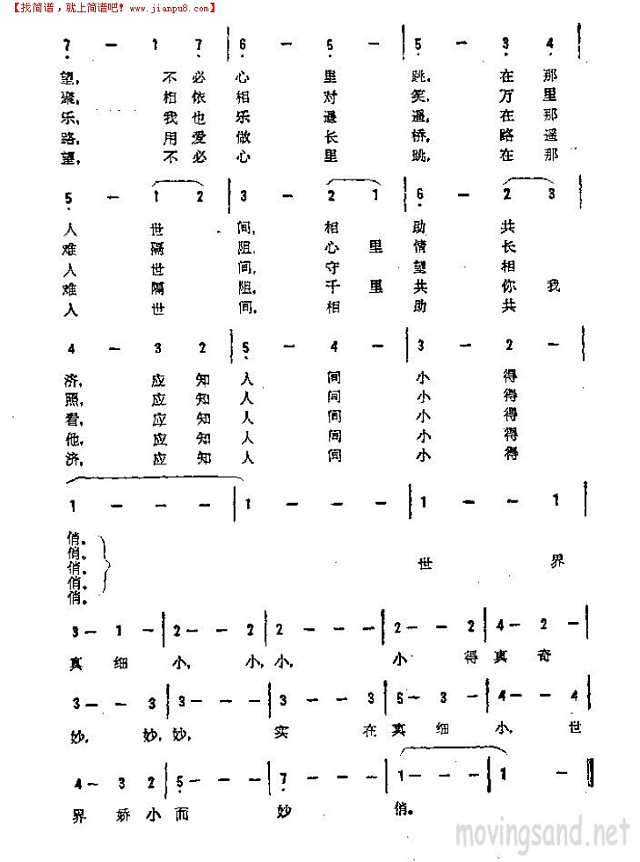 【找简谱，就上简谱吧！www.jianpu8.com】
7 — 1 7 | 6 — 5 — | 5 — 3 4 |
望， 不 必 心 里 跳， 在 那
聚， 相 依 相 对 笑， 万 里
乐， 我 也 乐 逍 遥， 在 那
路， 用 爱 做 长 桥， 路 遥
望， 不 必 心 里 跳， 在 那
5 — 1 2 | 3 — 2 1 | 6 — 2 3 |
人 世 间， 相 助 共
难 隔 阻， 心 里 情 长
人 世 间， 守 望 相
难 隔 阻， 千 里 共 你 我
人 世 间， 相 助 共
4 — 3 2 | 5 — 4 — | 3 — 2 — |
济， 应 知 人 间 小 得
照， 应 知 人 间 小 得
看， 应 知 人 间 小 得
他， 应 知 人 间 小 得
济， 应 知 人 间 小 得
1 — — — | 1 — — — | 1 — — 1 |
俏。
俏。
俏。 世 界
俏。
俏。
3 — 1 — | 2 — 2 — | 2 — — — | 2 — — 2 | 4 — 2 — |
真 细 小， 小， 小， 小 得 真 奇
3 — 3 — | 3 — — — | 3 — — 3 | 5 — 3 — | 4 — — 4 |
妙， 妙， 妙， 实 在 真 细 小， 世
4 — 3 2 | 5 — — — | 7 — — — | 1 — — — | 1 — 0 ‖
界 娇 小 而 妙 俏。
movingsand.net